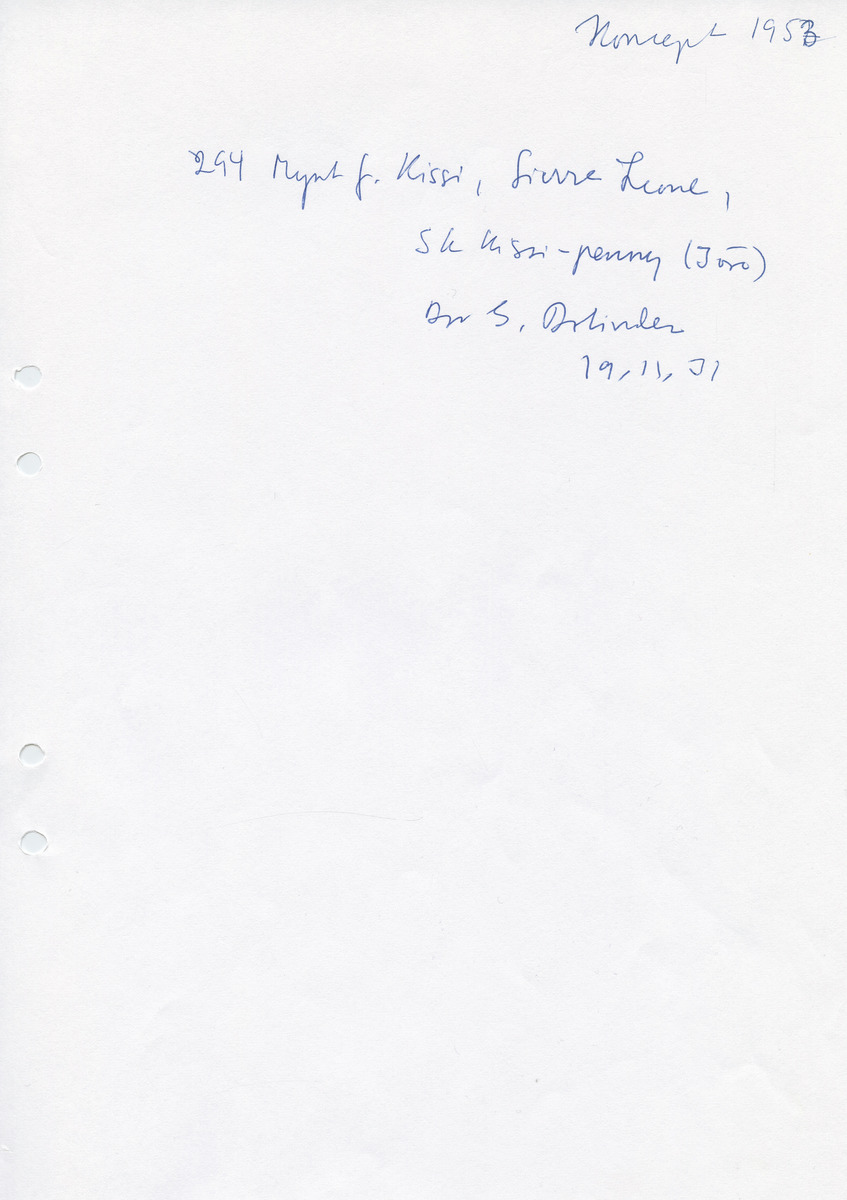 Koncept 1953
294 Mynt fr. Kissi, Sierra Leone,
Sk Kissi-penny (Joso)
Av S. Bolinder
19, 11, 31